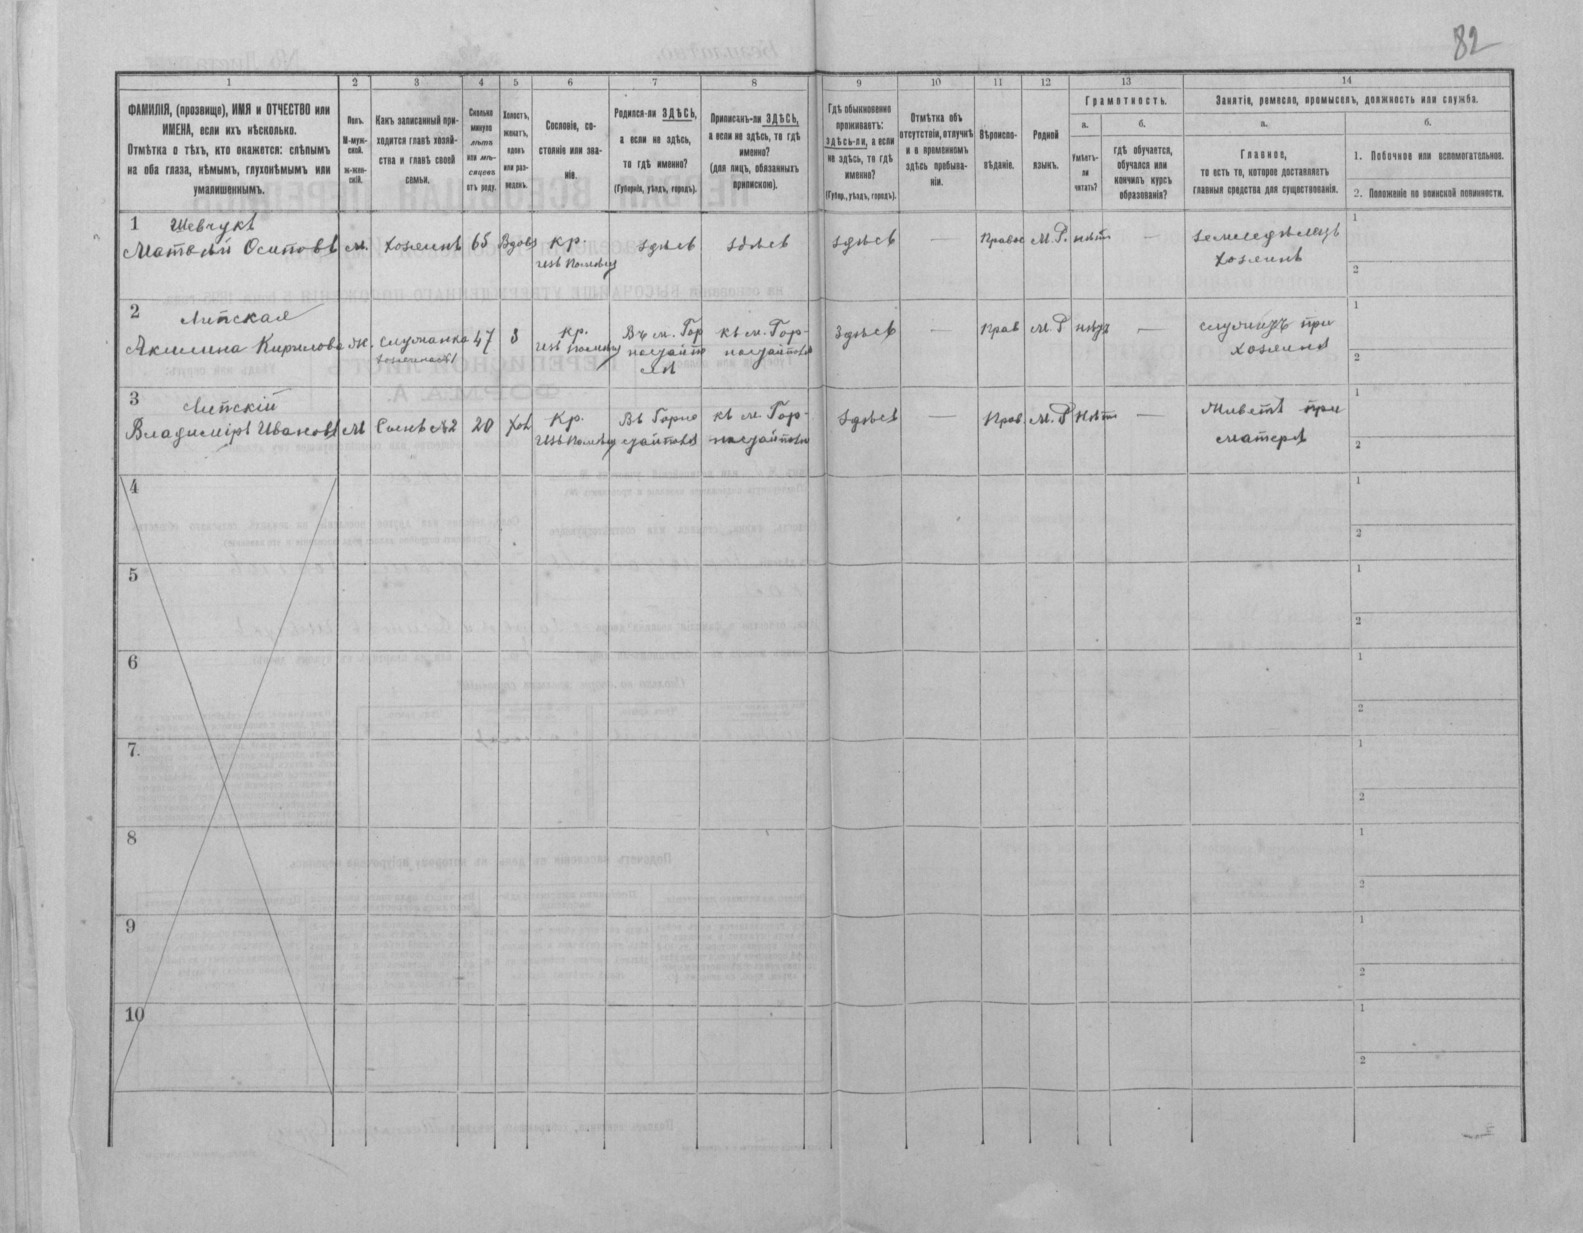 82
1
2
3
4
5
6
7
8
9
10
11
12
13
14
ФАМИЛІЯ, (прозвище), ИМЯ и ОТЧЕСТВО или
ИМЕНА, если ихъ нѣсколько.
Отмѣтка о тѣхъ, кто окажется: слѣпымъ
на оба глаза, нѣмымъ, глухонѣмымъ или
умалишеннымъ.
Полъ.
М-муж-
ской.
ж-жен-
скій.
Какъ записанный при-
ходится главѣ хозяй-
ства и главѣ своей
семьи.
Сколько
минуло
лѣтъ
или мѣ-
сяцевъ
отъ роду.
Холостъ,
женатъ,
вдовъ
или раз-
веденъ.
Сословіе, со-
стояніе или зва-
ніе.
Родился-ли ЗДѢСЬ,
а если не здѣсь,
то гдѣ именно?
(Губернія, уѣздъ, городъ).
Приписанъ-ли ЗДѢСЬ,
а если не здѣсь, то гдѣ
именно?
(для лицъ, обязанныхъ
припискою).
Гдѣ обыкновенно
проживаетъ:
здѣсь-ли, а если
не здѣсь, то гдѣ
именно?
(Губер., уѣздъ, городъ).
Отмѣтка объ
отсутствіи, отлучкѣ
и о временномъ
здѣсь пребыва-
ніи.
Вѣроиспо-
вѣданіе.
Родной
языкъ.
Грамотность.
а.
Умѣетъ-
ли
читать?
б.
гдѣ обучается,
обучался или
кончилъ курсъ
образованія?
Занятіе, ремесло, промыселъ, должность или служба.
а.
Главное,
то есть то, которое доставляетъ
главныя средства для существованія.
б.
1. Побочное или вспомогательное.
2. Положеніе по воинской повинности.
1 Шевчукъ
Матвѣй Осиповъ м. хозяинъ 65 Вдовъ кр. здѣсь здѣсь здѣсь — Правос М.Р. нѣтъ — земледѣлецъ
хозяинъ
1
2
2 Липская
Акилина Кирилова ж. служанка 47 кр. Въ м. Гор къ м. Гор- здѣсь — Прав М.Р нѣтъ — служитъ при
хозяинѣ
1
2
3 Липскій
Владиміръ Ивановъ М Сынъ №2 20 Хол Кр. Въ Горно къ м. Гор- здѣсь — Прав. М.Р Нѣтъ — Живетъ при
матерѣ
1
2
4
1
2
5
1
2
6
1
2
7.
1
2
8
1
2
9
1
2
10
1
2